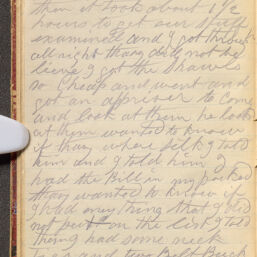 then it took about 1/2
hours to get our stuff
examined and I got through
all right thay did not be
lieve I got the Shawls
so cheap and went and
got an appriser to come
and look at them he look
at them wanted to know
if thay where silk I told
him and I told him I
had the Bill in my pocket
thay wanted to know if
I had any thing that I did
not put on the list I told
them I had some neck
ties and two Belt Buck